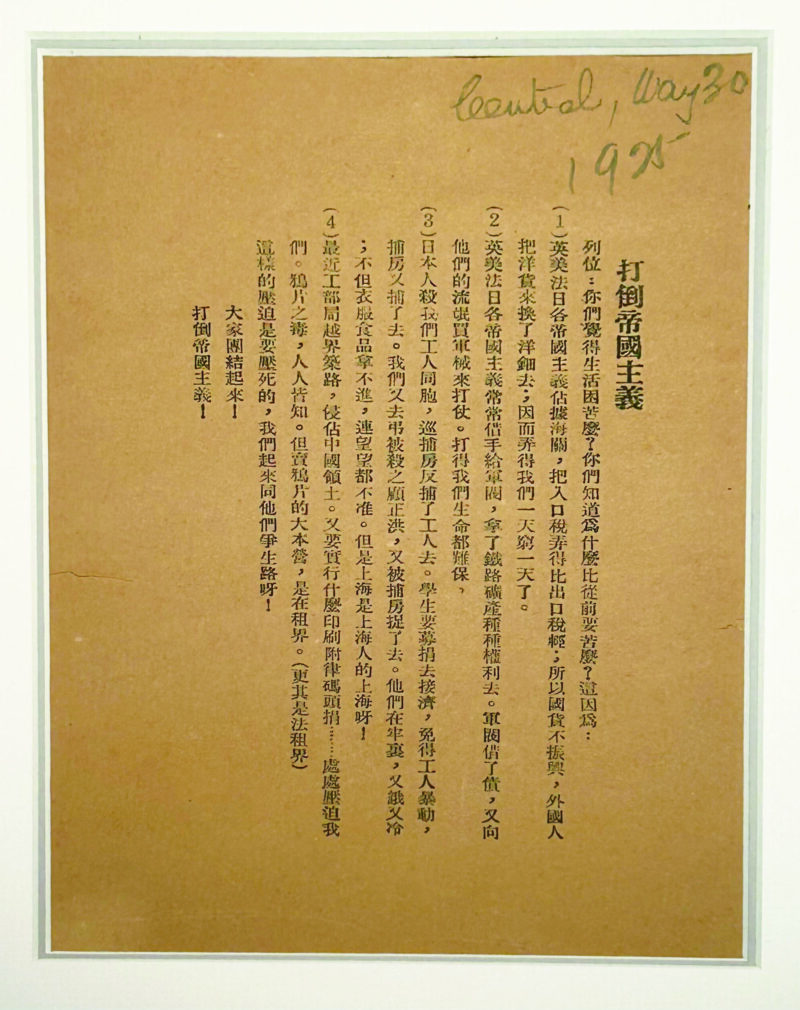 Central, May 30
1925
打倒帝國主義
列位：你們覺得生活困苦麼？你們知道爲什麼比從前要苦麼？這因爲：
（1）英美法日各帝國主義佔據海關，把入口稅弄得比出口稅輕；所以國貨不振興，外國人
把洋貨來換了洋鈿去；因而弄得我們一天窮一天了。
（2）英美法日各帝國主義常常借手給軍閥，拿了鐵路礦產種種權利去。軍閥借了債，又向
他們的流氓買軍械來打仗。打得我們生命都難保。
（3）日本人殺我們工人同胞，巡捕房反捕了工人去。學生要募捐去接濟，免得工人暴動，
捕房又捕了去。我們又去弔被殺之顧正洪，又被捕房捉了去。他們在牢裏，又餓又冷
；不但衣服食品拿不進，連望望都不准。但是上海是上海人的上海呀！
（4）最近工部局越界築路，侵佔中國領土。又要實行什麼印刷附律碼頭捐……處處壓迫我
們。鴉片之毒，人人皆知。但賣鴉片的大本營，是在租界。（更其是法租界）
這樣的壓迫是要壓死的，我們起來同他們爭生路呀！
大家團結起來！
打倒帝國主義！